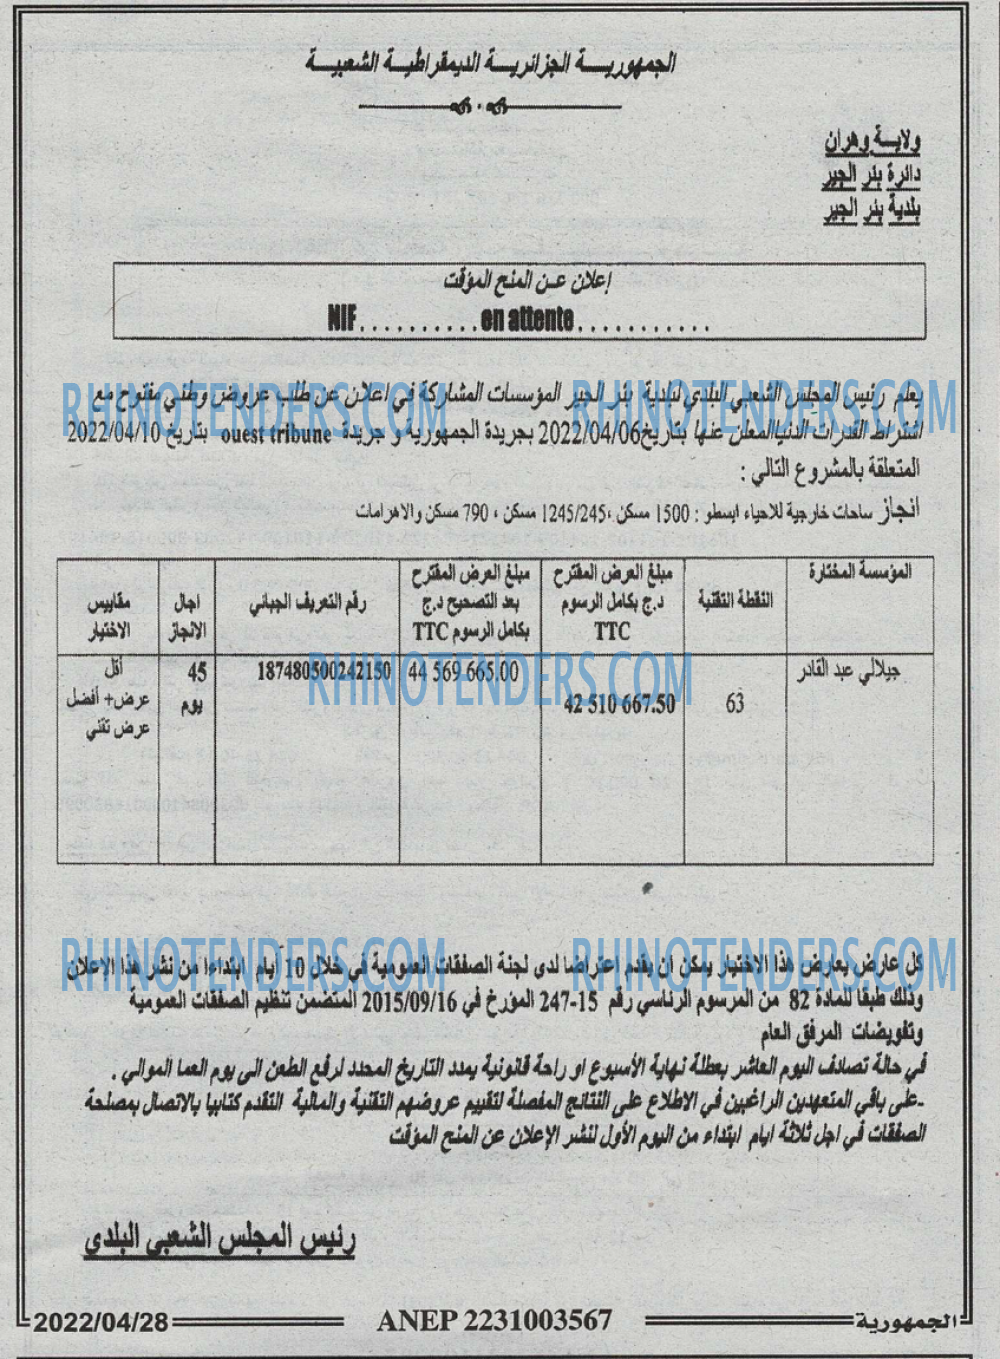 الجمهوريـــة الجزائريـــة الديمقراطيـة الشعبيـــة
ولايـــة وهران
دائرة بئر الجير
بلدية بئر الجير
إعلان عـن المنح المؤقت
NIF..........en attente...........
يعلم رئيس المجلس الشعبي البلدي لبلدية بئر الجير المؤسسات المشاركة في اعلان عن طلب عروض وطني مفتوح مع
اشتراط القدرات الدنياالمعلن عنها بتاريخ2022/04/06 بجريدة الجمهورية و جريدة ouest tribune بتاريخ 2022/04/10
المتعلقة بالمشروع التالي :
انجاز ساحات خارجية للاحياء ايسطو : 1500 مسكن ،1245/245 مسكن ، 790 مسكن والاهرامات
المؤسسة المختارة
النقطة التقنية
مبلغ العرض المقترح
د.ج بكامل الرسوم
TTC
مبلغ العرض المقترح
بعد التصحيح د.ج
بكامل الرسوم TTC
رقم التعريف الجبائي
اجال
الانجاز
مقاييس
الاختيار
جيلالي عبد القادر
63
42 510 667.50
44 569 665.00
187480500242150
45
يوم
أقل
عرض+ أفضل
عرض تقني
كل عارض يعارض هذا الاختيار يمكن ان يقدم اعتراضا لدى لجنة الصفقات العمومية في خلال 10 أيام ابتداءا من نشر هذا الإعلان
وذلك طبقا للمادة 82 من المرسوم الرئاسي رقم 15-247 المؤرخ في 2015/09/16 المتضمن تنظيم الصفقات العمومية
وتفويضات المرفق العام
في حالة تصادف اليوم العاشر بعطلة نهاية الأسبوع او راحة قانونية يمدد التاريخ المحدد لرفع الطعن الى يوم العما الموالي .
-على باقي المتعهدين الراغبين في الاطلاع على النتائج المفصلة لتقييم عروضهم التقنية والمالية التقدم كتابيا بالاتصال بمصلحة
الصفقات في اجل ثلاثة ايام ابتداء من اليوم الأول لنشر الإعلان عن المنح المؤقت
رئيس المجلس الشعبي البلدي
الجمهورية
ANEP 2231003567
2022/04/28
RHINOTENDERS.COM
RHINOTENDERS.COM
RHINOTENDERS.COM
RHINOTENDERS.COM
RHINOTENDERS.COM